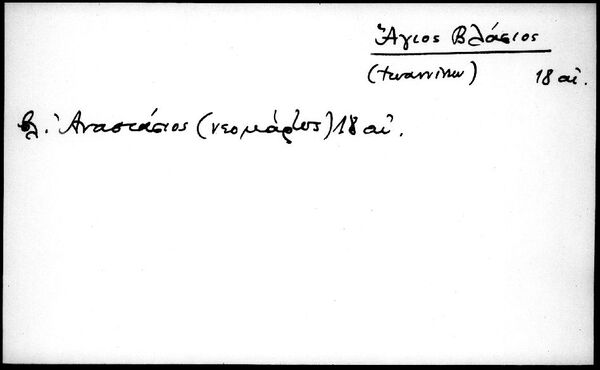 Ἅγιος Βλάσιος
(Ιωαννίνων) 18 αἰ.
βλ. Ἀναστάσιος (νεομάρτυς) 18 αἰ.